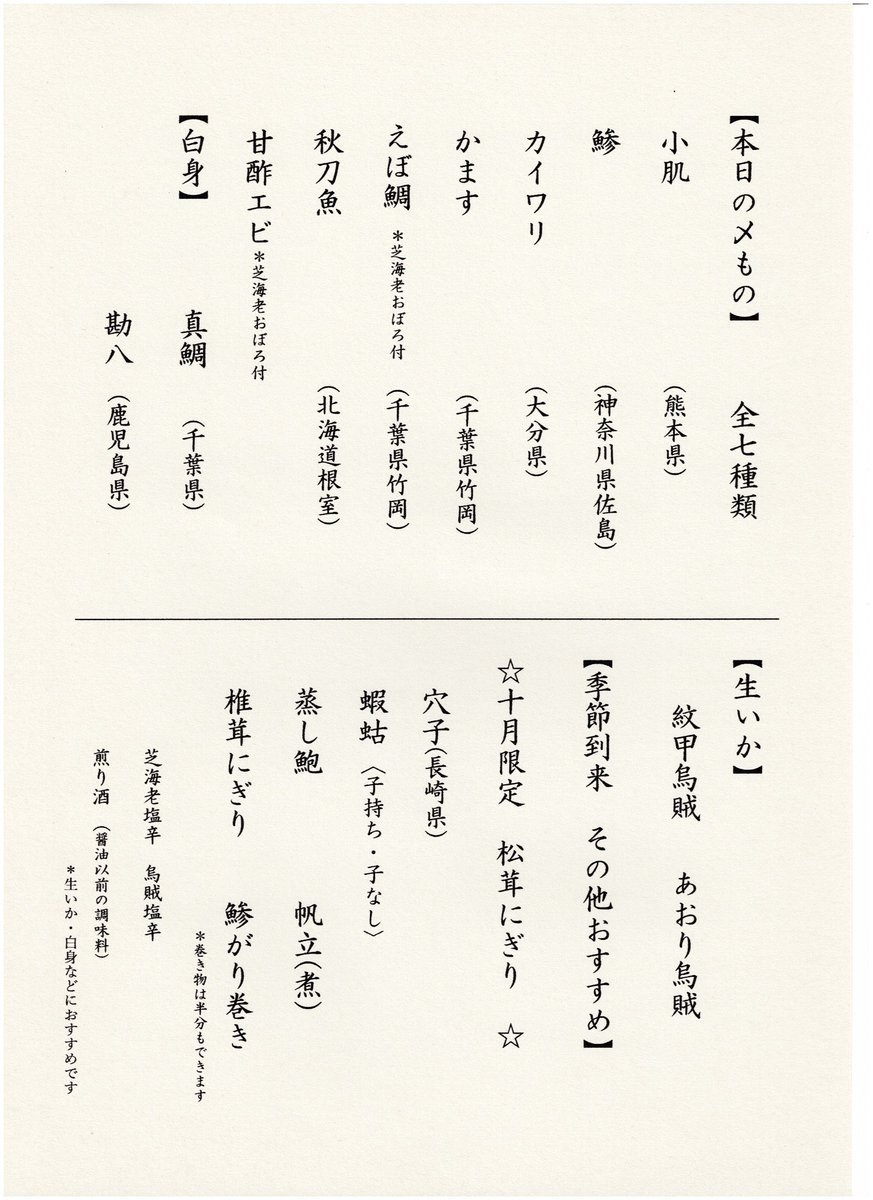 【本日の〆もの】　全七種類
小肌　（熊本県）
鯵　（神奈川県佐島）
カイワリ　（大分県）
かます　（千葉県竹岡）
えぼ鯛　＊芝海老おぼろ付　（千葉県竹岡）
秋刀魚　（北海道根室）
甘酢エビ＊芝海老おぼろ付
【白身】　真鯛　（千葉県）
勘八　（鹿児島県）
【生いか】
紋甲烏賊　あおり烏賊
【季節到来　その他おすすめ】
☆十月限定　松茸にぎり　☆
穴子（長崎県）
蝦蛄〈子持ち・子なし〉
蒸し鮑　帆立（煮）
椎茸にぎり　鯵がり巻き
＊巻き物は半分もできます
芝海老塩辛　烏賊塩辛
煎り酒　（醤油以前の調味料）
＊生いか・白身などにおすすめです